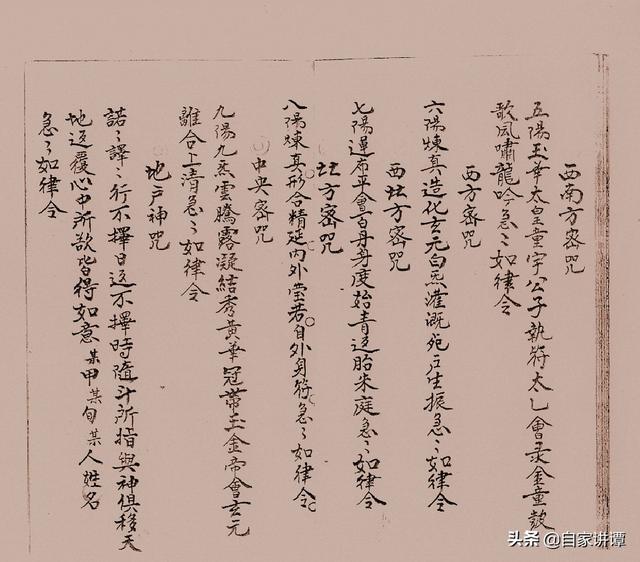 西南方密咒
五陽玉華太皇童字公子執符太乙會录金童鼓
歌風嘯龍吟急〻如律令
西方密咒
六陽煉真造化玄元白炁灌溉苑戶生振急〻如律令
西北方密咒
七陽運布平會百丹度始青返胎朱庭急〻如律令
北方密咒
八陽煉真形合精延內外瑩若自外身符急〻如律令
中央密咒
九陽九炁雲騰露凝結秀黃華冠帶玉金帝會玄元
離合上清急〻如律令
地戶神咒
諾〻譯〻行不擇日返不擇時隨斗所指與神俱移天
地返覆心中所欲皆得如意某甲某旬某人姓名
急〻如律令
头条 @自家讲谭